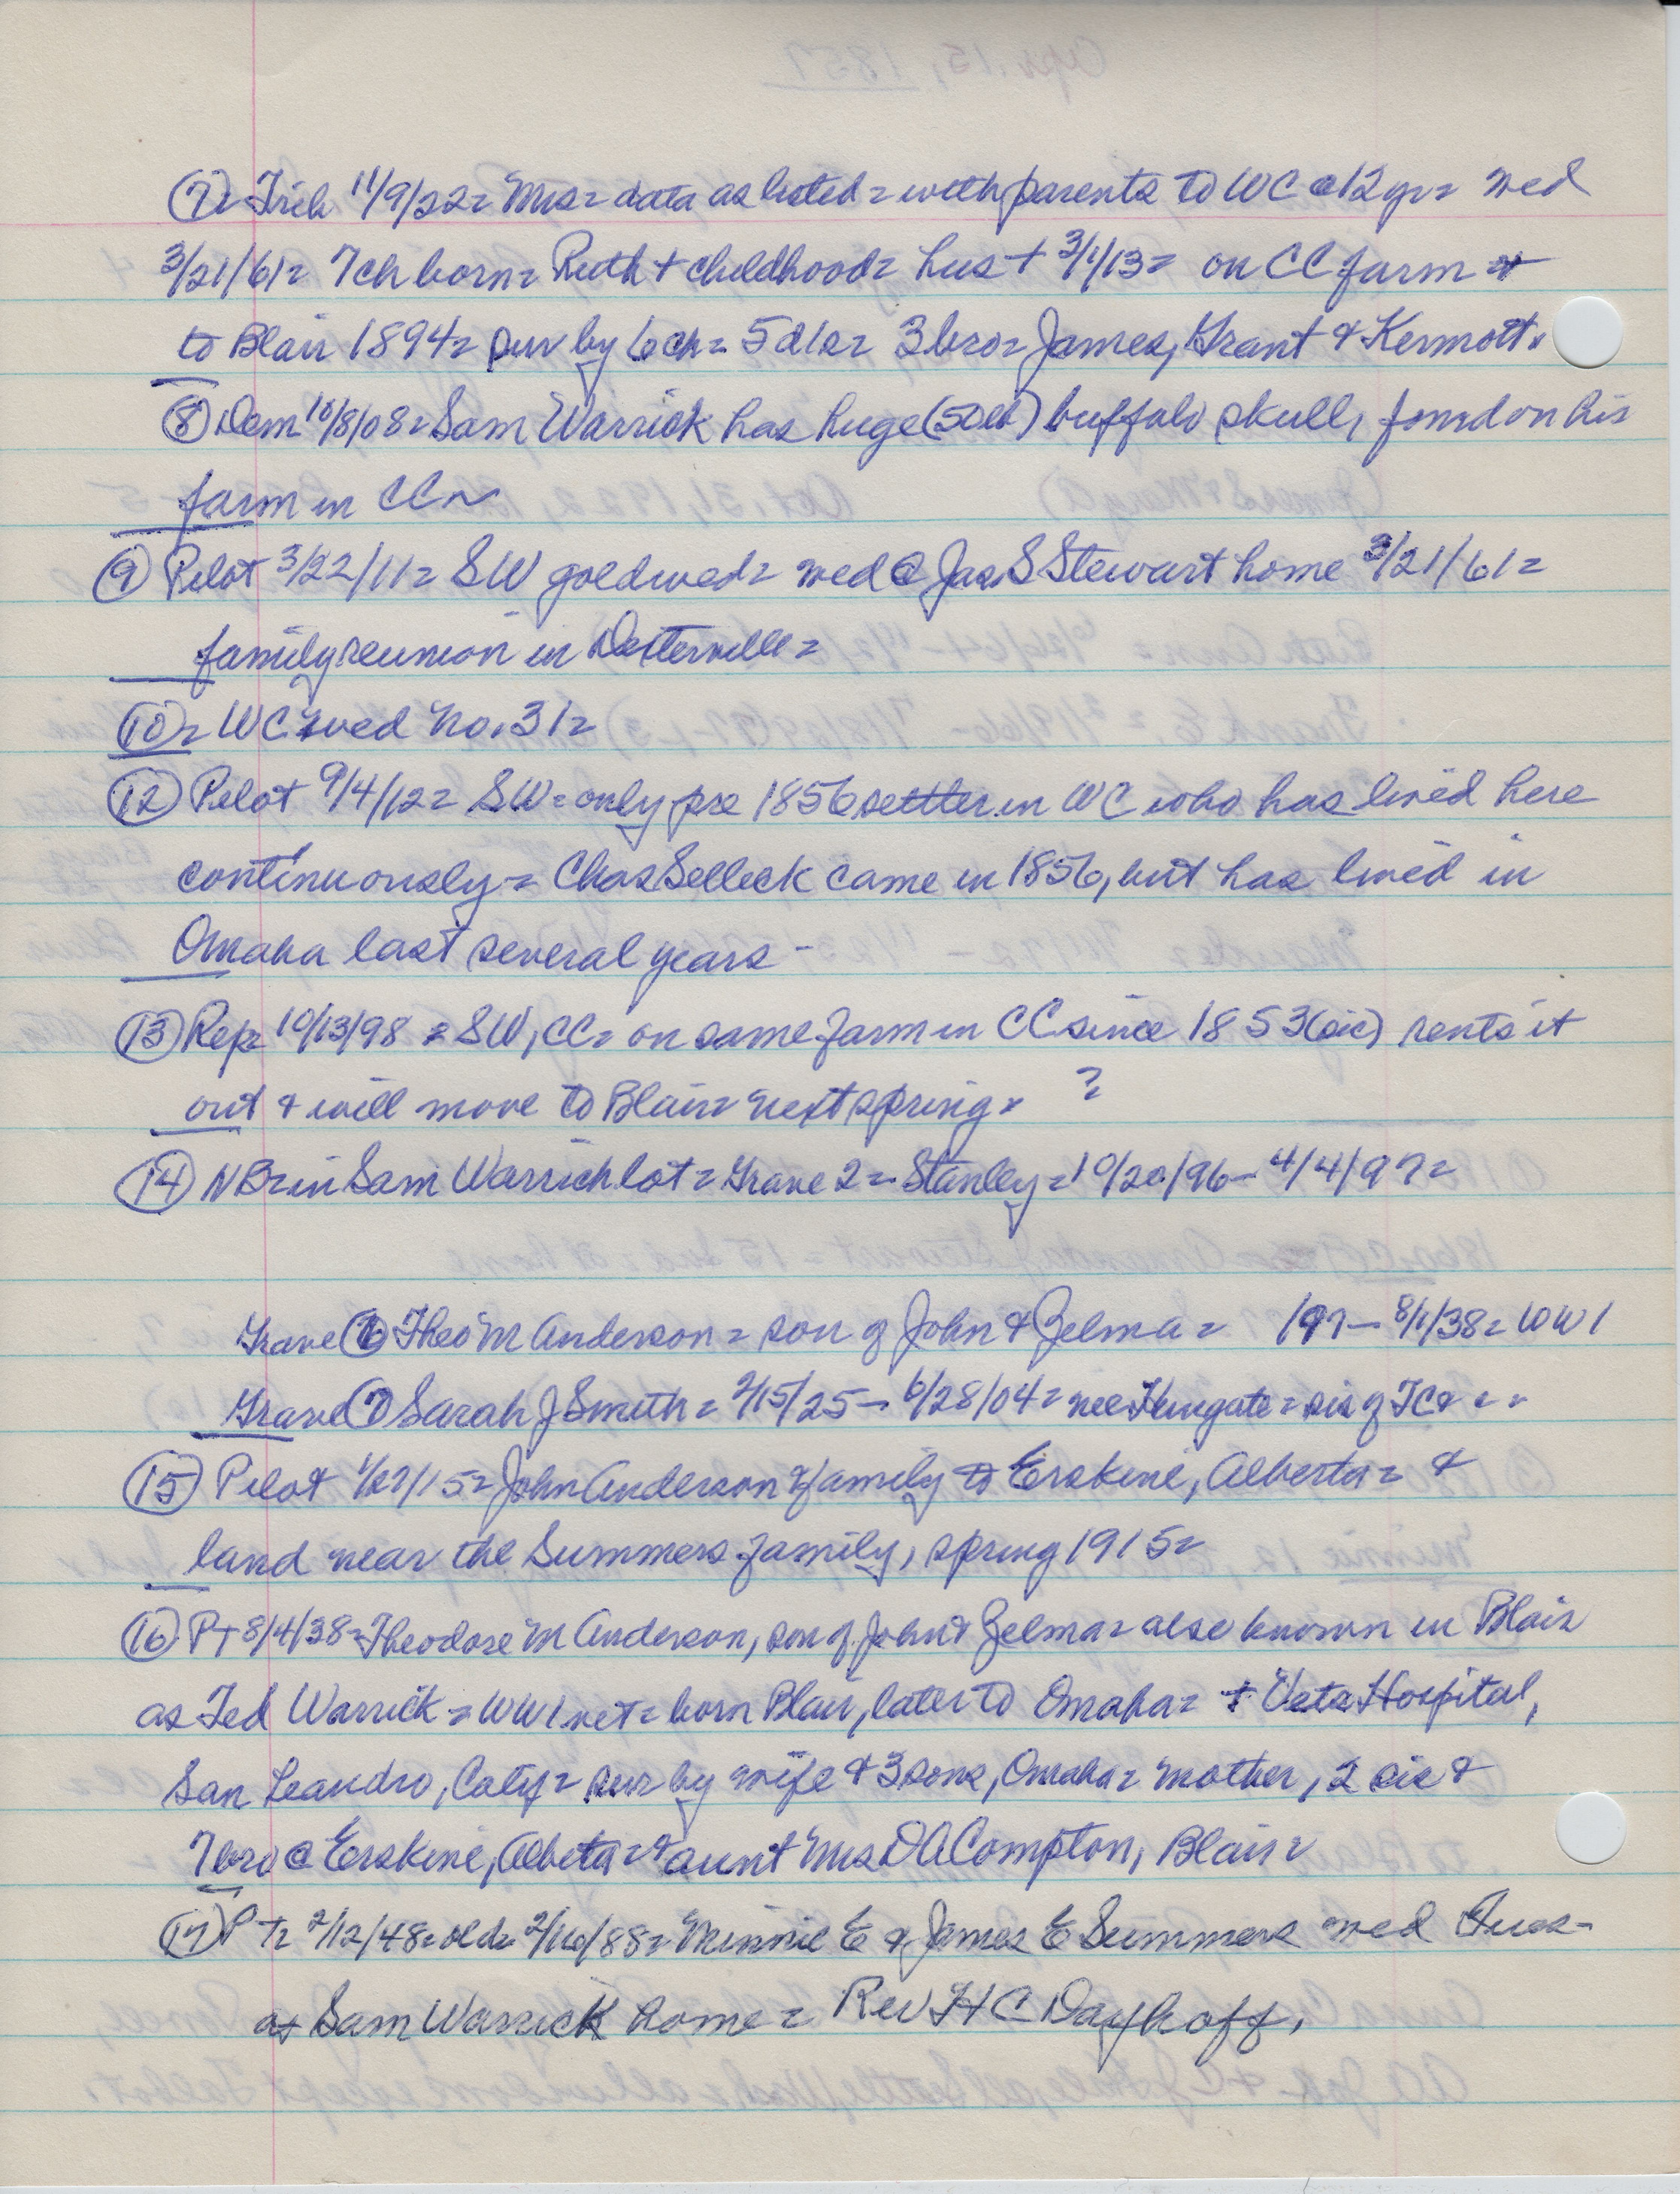 (7)= Trib 11/9/22= Mrs= data as listed= with parents to WC @ 12 yr= wed
3/21/61= 7 ch born= Ruth + childhood= hus + 3/1/13= on CC farm &
to Blair 1894= sur by 6 ch= 5 d/s= 3 bro= James, Grant & Kermott.
(8) Dem 10/8/08= Sam Warrick has huge (50 lb) buffalo skull, found on his
farm in CC~
(9) Pilot 3/22/11= SW gold wed= wed @ Jas S Stewart home 3/21/61=
family reunion in Dexterville=
(10)= WC wed No. 31=
(12) Pilot 9/4/12= SW= only pre 1856 settler in WC who has lived here
continuously= Chas Selleck came in 1856, but has lived in
Omaha last several years -
(13) Rep= 10/13/98 = SW, CC= on same farm in CC since 1853 (sic) rents it
out & will move to Blair= next spring. ?
(14) NB= in Sam Warrick lot= Grave 2= Stanley= 10/20/96- 4/4/97=
Grave (6) Theo M Anderson= son of John & Zelma= 189?- 8/1/38= WW1
Grave (7) Sarah J Smith= 2/15/25- 6/28/04= nee Hungate= sis of TC&
(15) Pilot 1/27/15= John Anderson & family to Erskine, Alberta= &
land near the Summers family, spring 1915=
(16) PT 8/4/38= Theodore M Anderson, son of John & Zelma= also known in Blair
as Ted Warrick= WW1 vet= born Blair, later to Omaha= + Vets Hospital,
San Leandro, Caly= sur by wife & 3 sons, Omaha= mother, 2 sis &
7 bro @ Erskine, Albeta= & aunt Mrs DA Compton, Blair=
(17) PT= 2/12/48= old= 2/16/88= Minnie E & James E Summers wed Tues-
at Sam Warrick home= Rev HC Dayhoff.